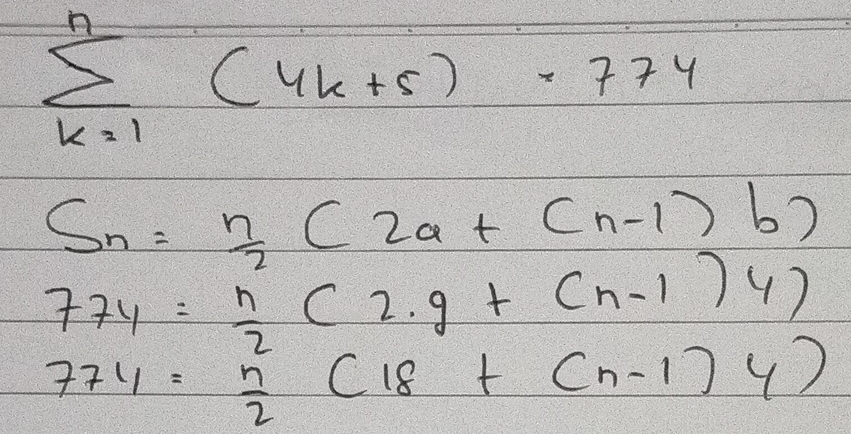 n
∑ (4k+5) = 774
k=1
Sn = n/2 (2a + (n-1) b)
774 = n/2 (2.9 + (n-1) 4)
774 = n/2 (18 + (n-1) 4)